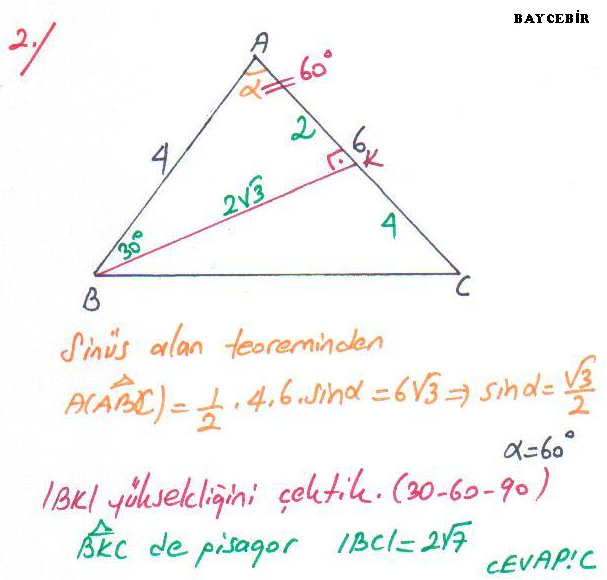 BAYCEBİR
2./
A
α = 60°
2
6
K
4
2√3
4
30°
B
C
Sinüs alan teoreminden
A(ABC) = 1/2 . 4.6.sinα = 6√3 ⇒ sinα = √3/2
α=60°
|BK| yüksekliğini çektik. (30-60-90)
BKC de pisagor |BC| = 2√7
CEVAP:C